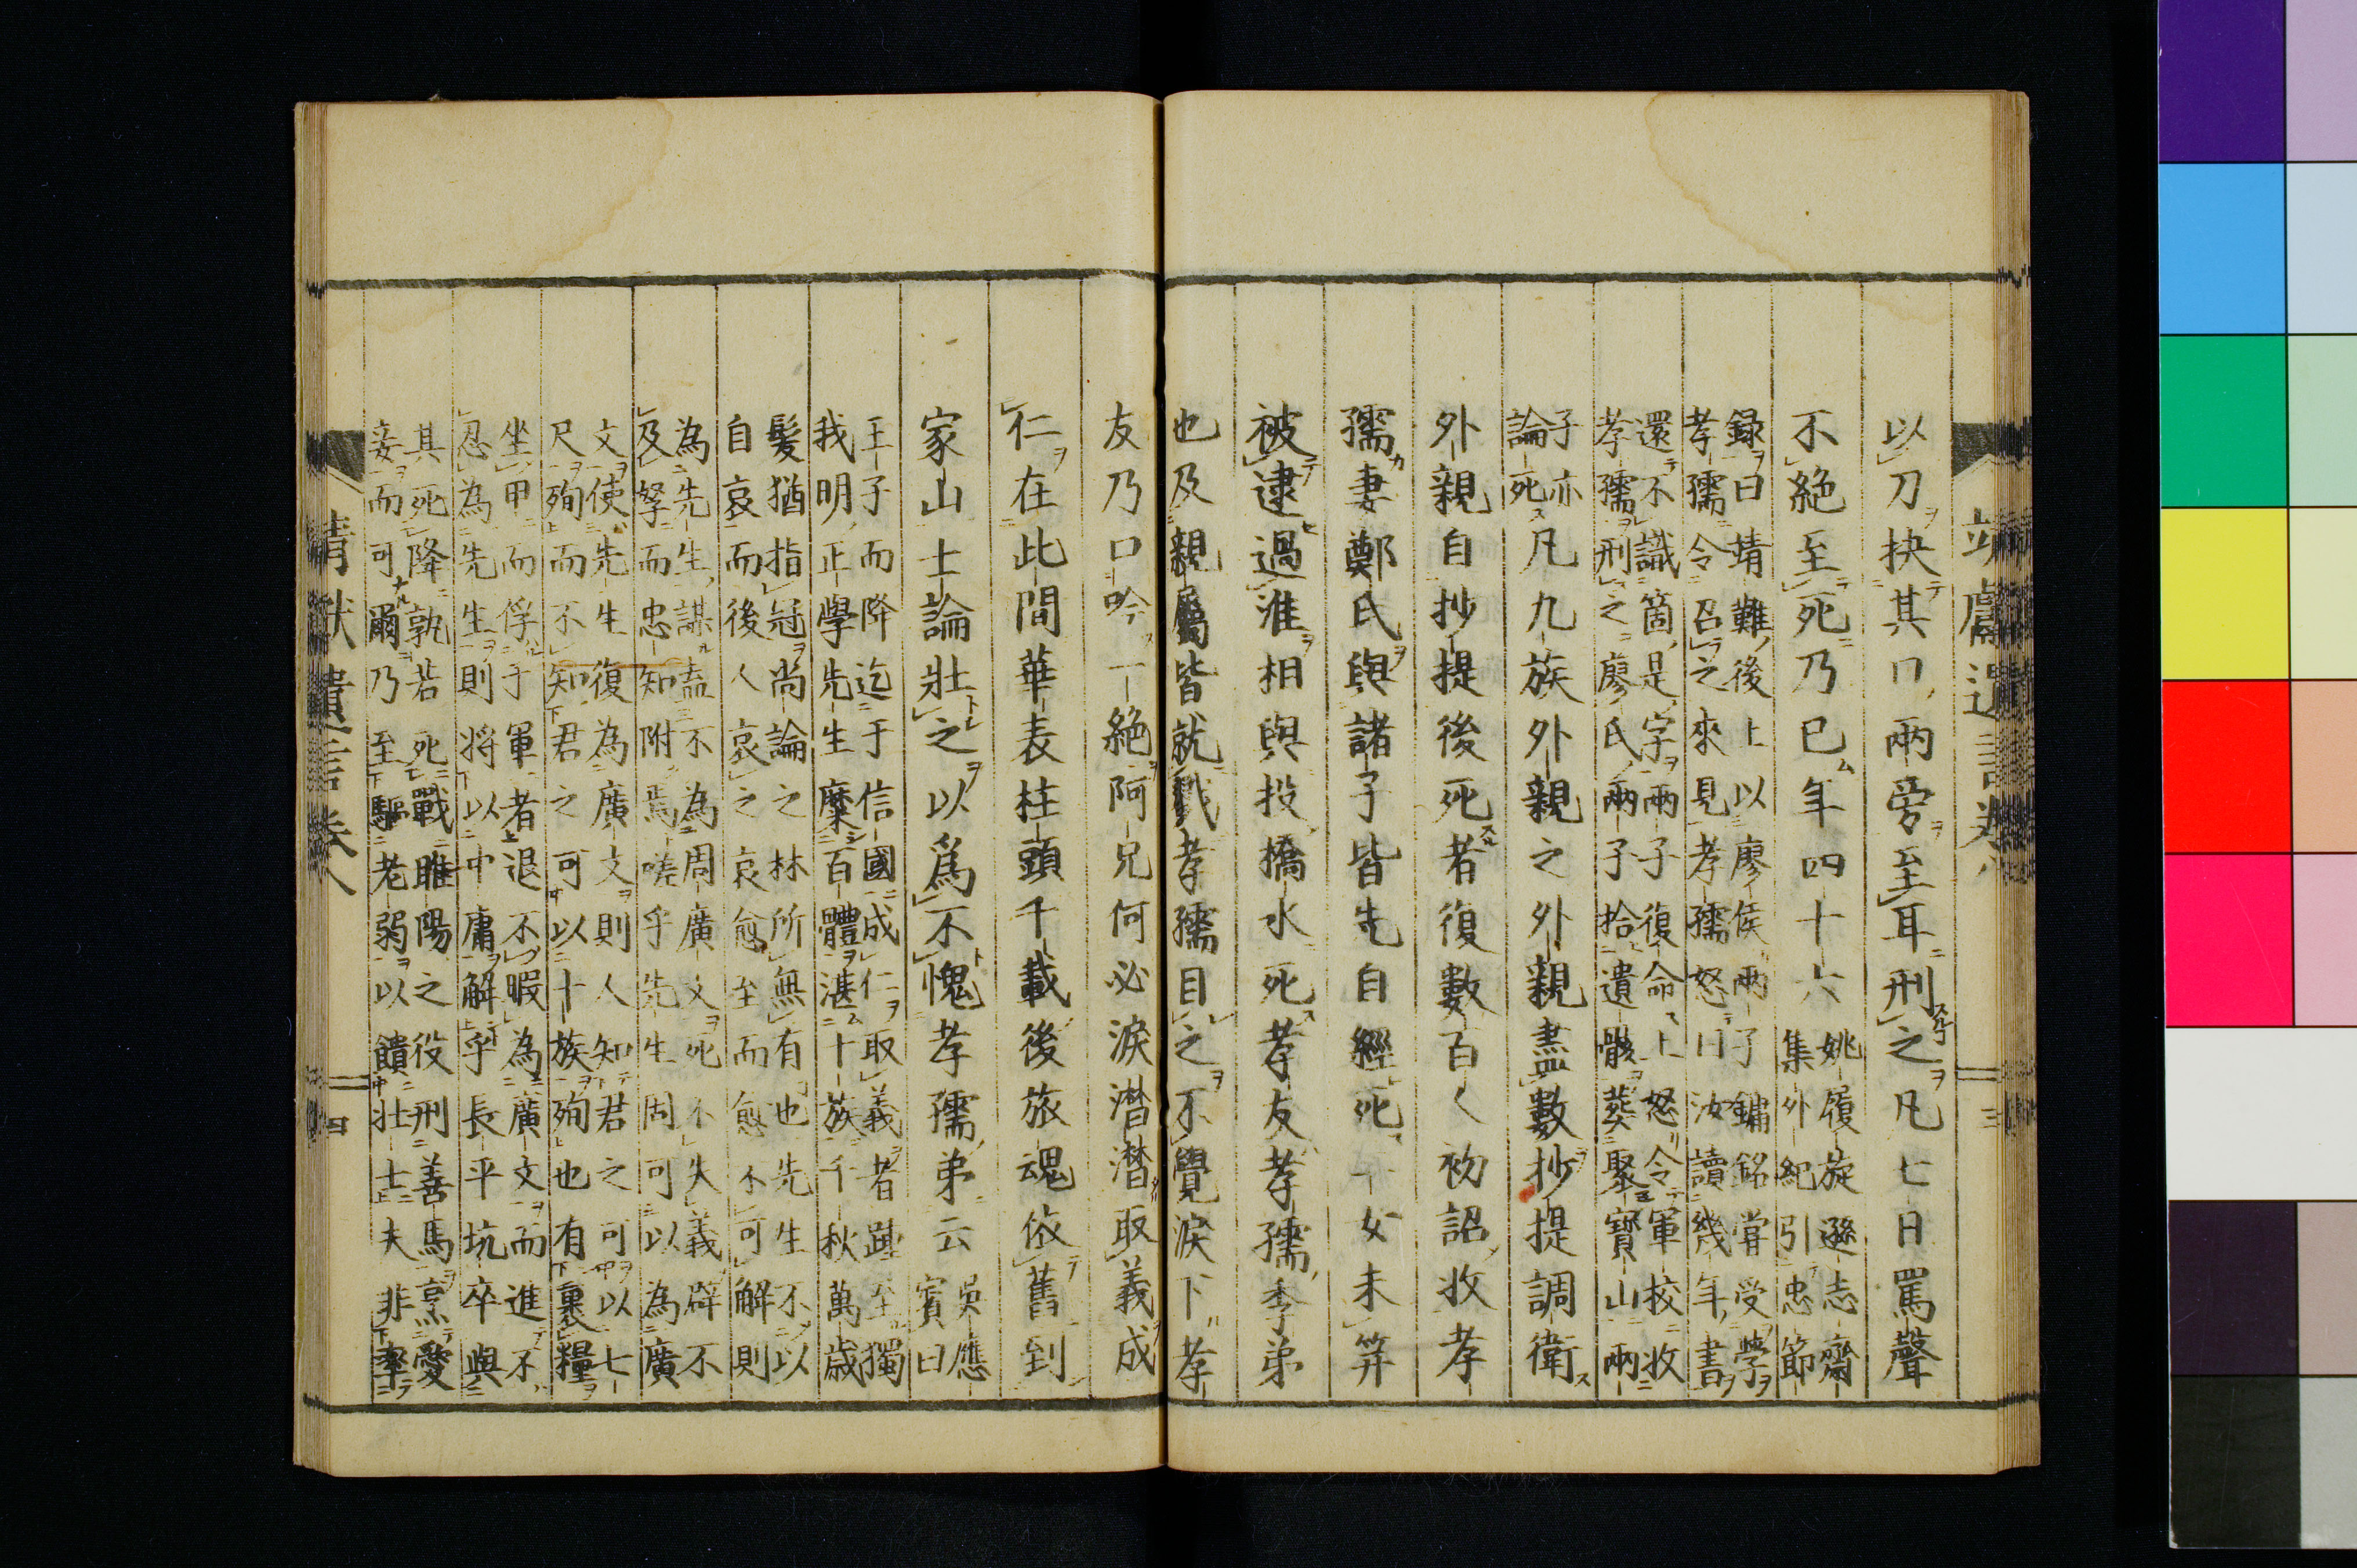 靖獻遺言卷八
三
以刀抉其口兩旁至耳刑之凡七日罵聲
不絕至死乃已年四十六
姚履旋遜志齋
集外紀引忠節
錄曰靖難後上以廖侯兩子鏞銘嘗受學
孝孺令召之來見孝孺怒曰汝讀幾年書
還不識箇是字兩子復命上怒令軍校收
孝孺刑之廖氏兩子拾遺骸葬聚寶山兩
子亦
論死
凡九族外親之外親盡數抄提調衛
外親自抄提後死者復數百人初詔收孝
孺妻鄭氏與諸子皆先自經死二女未笄
被逮過淮相與投橋水死孝友孝孺季弟
也及親屬皆就戮孝孺目之不覺淚下孝
友乃口吟一絕阿兄何必淚潸潸取義成
仁在此間華表柱頭千載後旅魂依舊到
家山士論壯之以爲不愧孝孺弟云
吳應
賓曰
王子而降迄于信國成仁取義者踵至獨
我明正學先生糜百體湛十族千秋萬歲
髮猶指冠尚論之林所無有也先生不以
自哀而後人哀之哀愈至而愈不可解則
為先生謀盍不為周廣文死不失義辟不
及孥而忠知附焉嗟乎先生周可以為廣
文使先生復為廣文則人知君之可以七
尺殉而不知君之可以十族殉也有裏糧
坐甲而俘于軍者退不暇為廣文而進不
忍為先生則將以中庸解乎長平坑卒與
其死降孰若死戰睢陽之役刑善馬烹愛
妾而可爾乃至驅老弱以饋壯士夫非率
靖獻遺言卷八
四